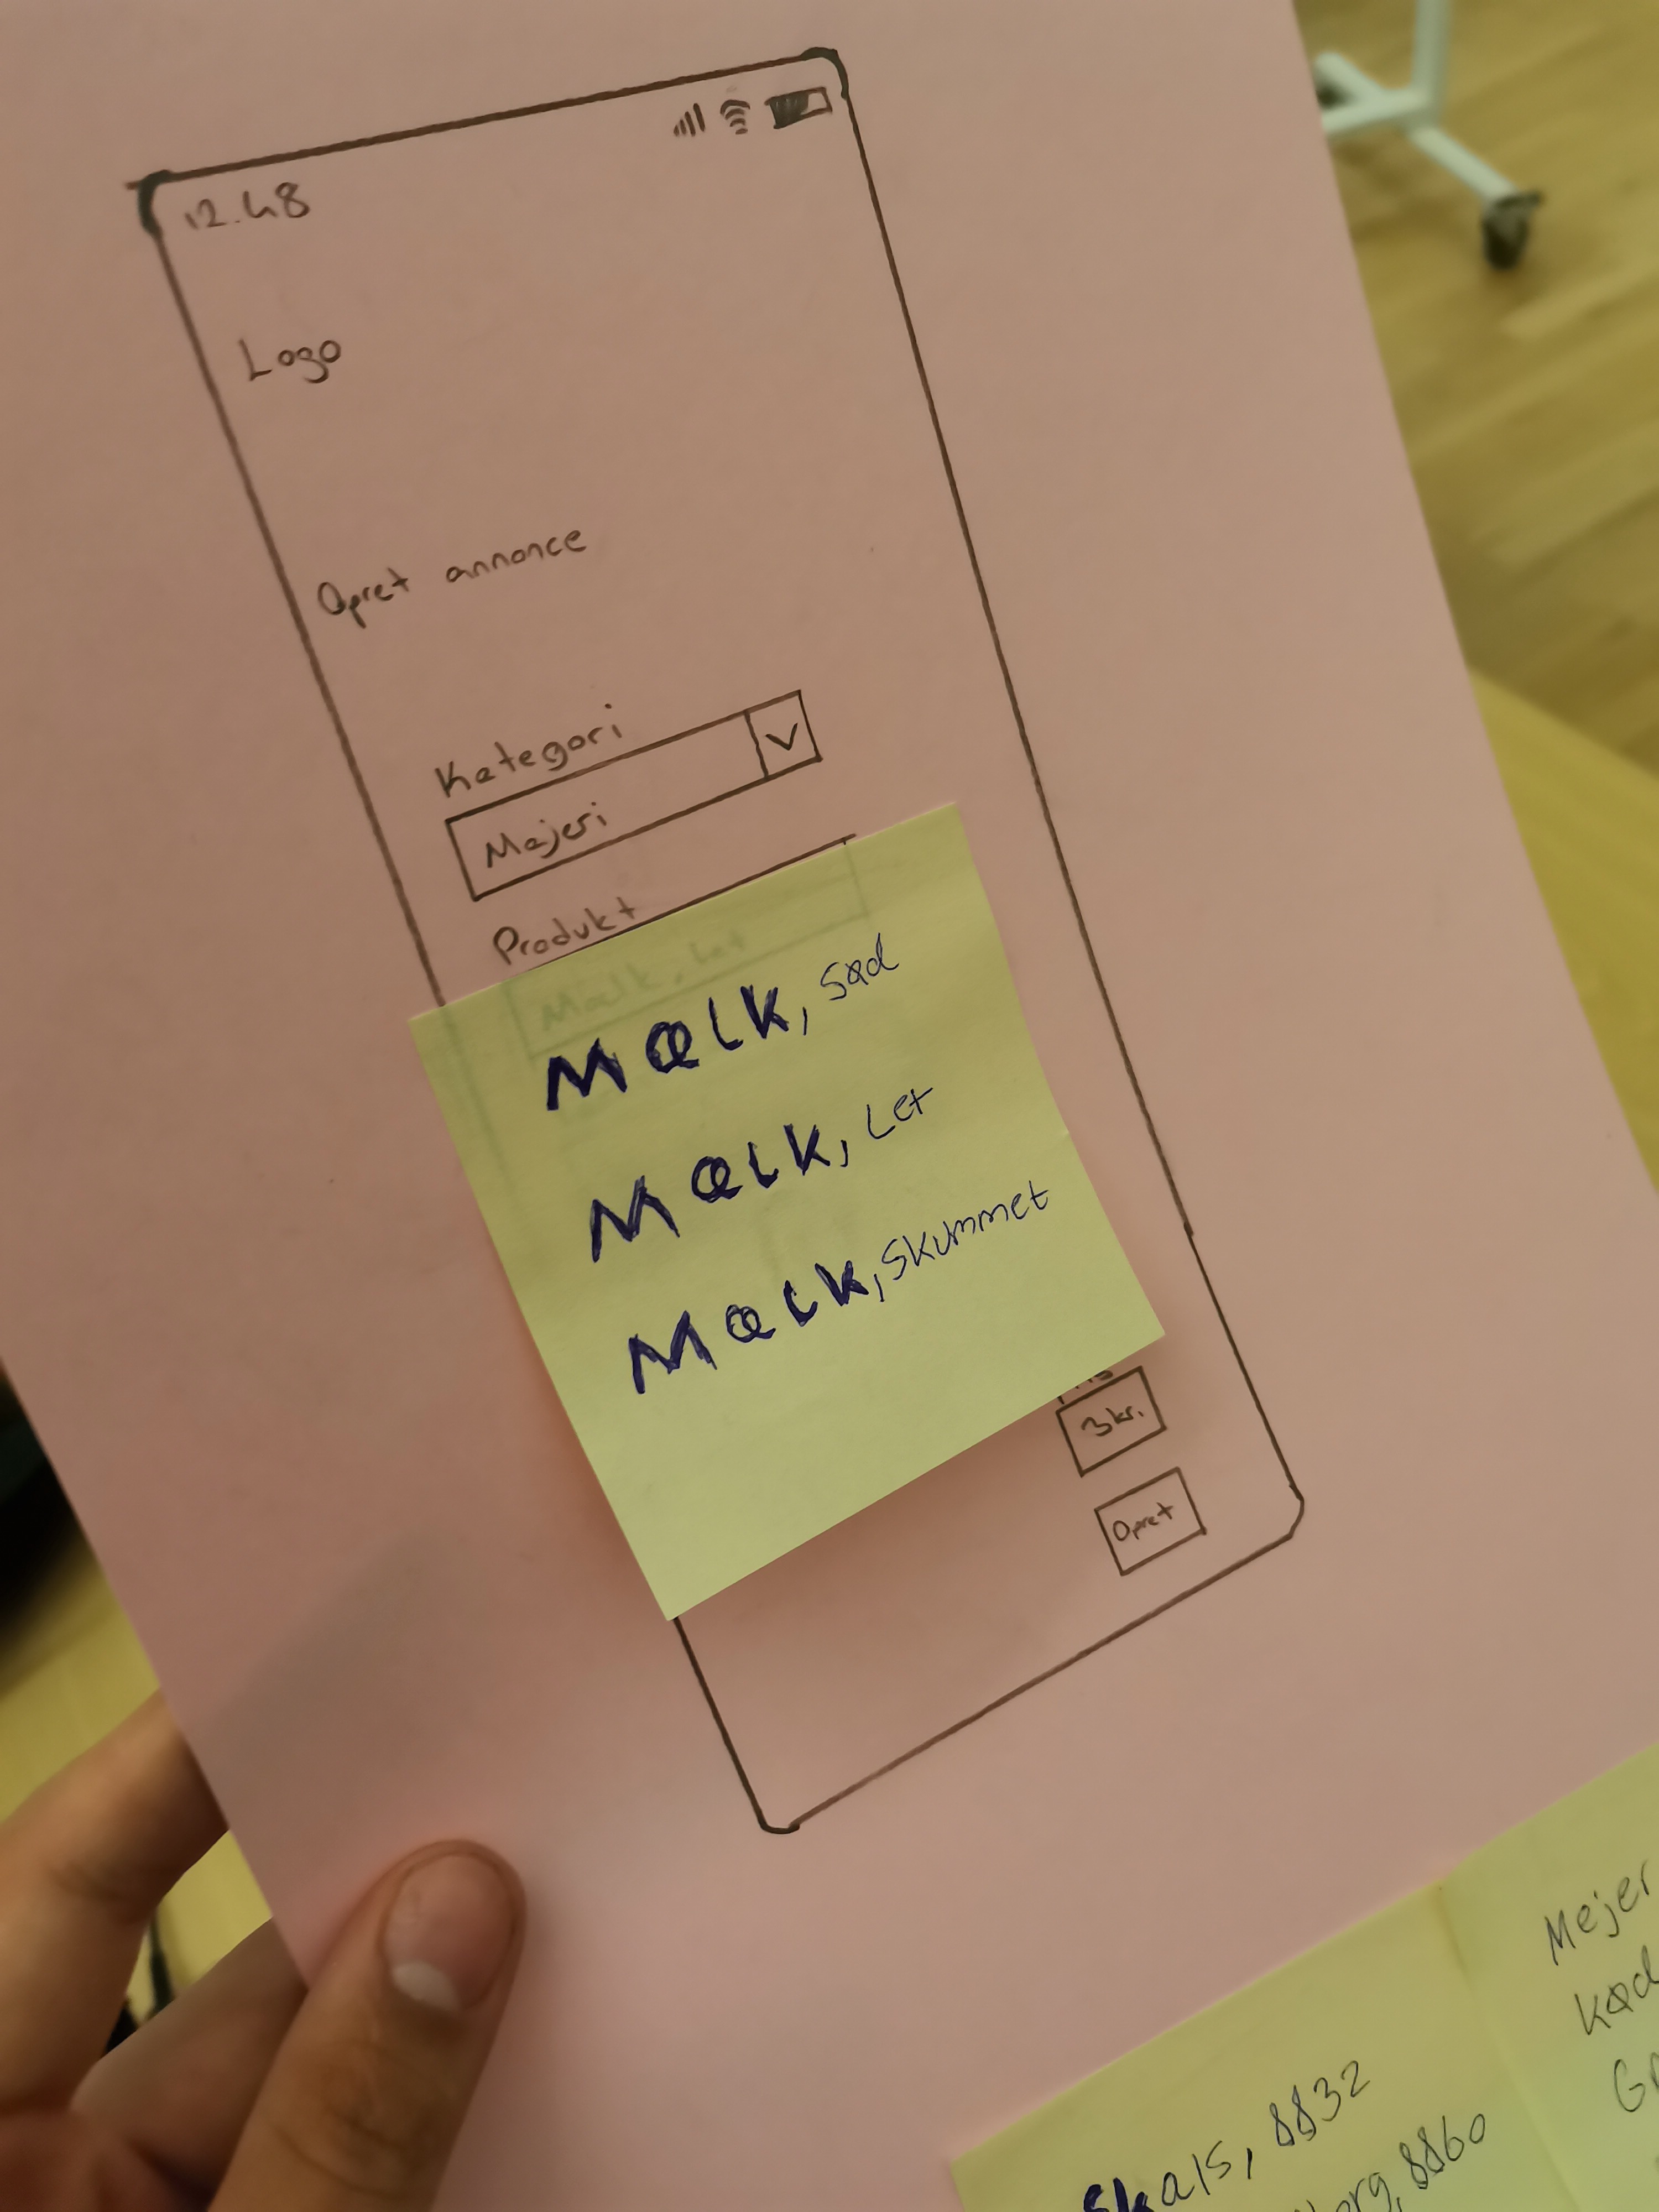 12.48
Logo
Opret annonce
Kategori
Mejeri
Produkt
Mælk, let
Mælk, sød
Mælk, Let
Mælk, skummet
3 kr.
Opret
Skals, 8832
8860
Mejer
Kød